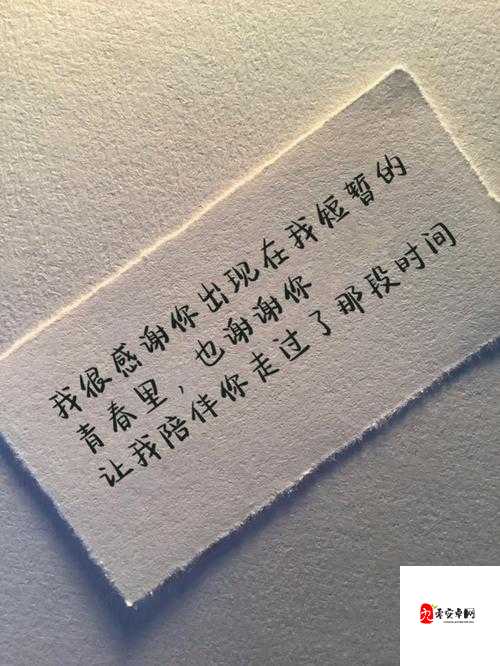 我很感谢你出现在我短暂的
青春里，也谢谢你
让我陪伴你走过了那段时间